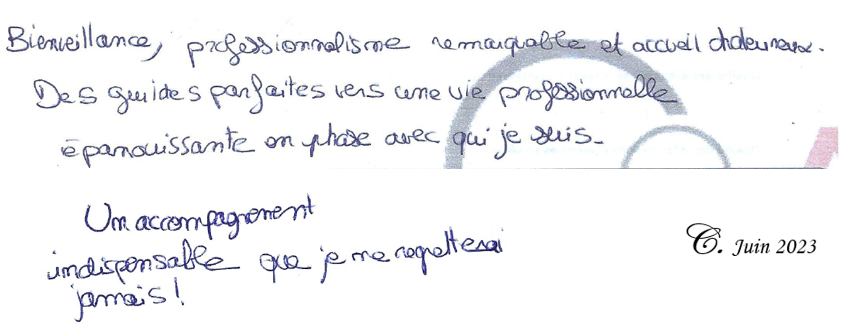 Bienveillance, professionnalisme remarquable et accueil chaleureux.
Des guides parfaites vers une vie professionnelle
épanouissante en phase avec qui je suis.
Un accompagnement
indispensable que je ne regretterai
jamais!
C. Juin 2023